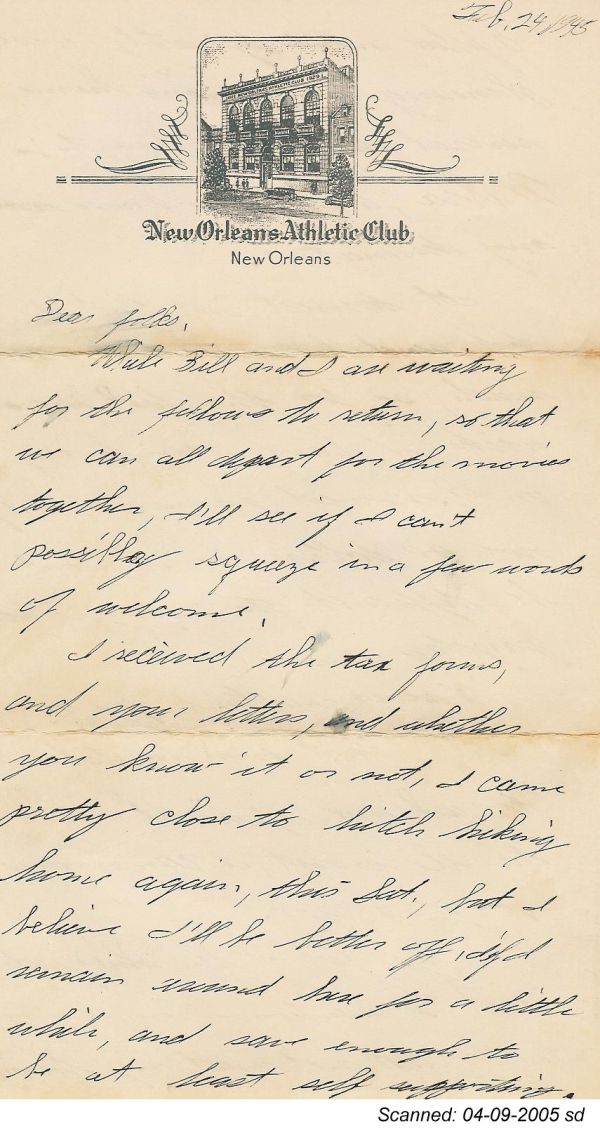 Feb. 24, 1945
New Orleans Athletic Club
New Orleans
Dear folks,
While Bill and I are waiting
for the fellows to return, so that
we can all depart for the movies
together, I'll see if I can't
possibly squeeze in a few words
of welcome.
I received the tax forms,
and your letters, and whether
you know it or not, I came
pretty close to hitch hiking
home again, this Sat., but I
believe I'll be better off, if I'd
remain around here for a little
while, and save enough to
be at least self supporting.
Scanned: 04-09-2005 sd